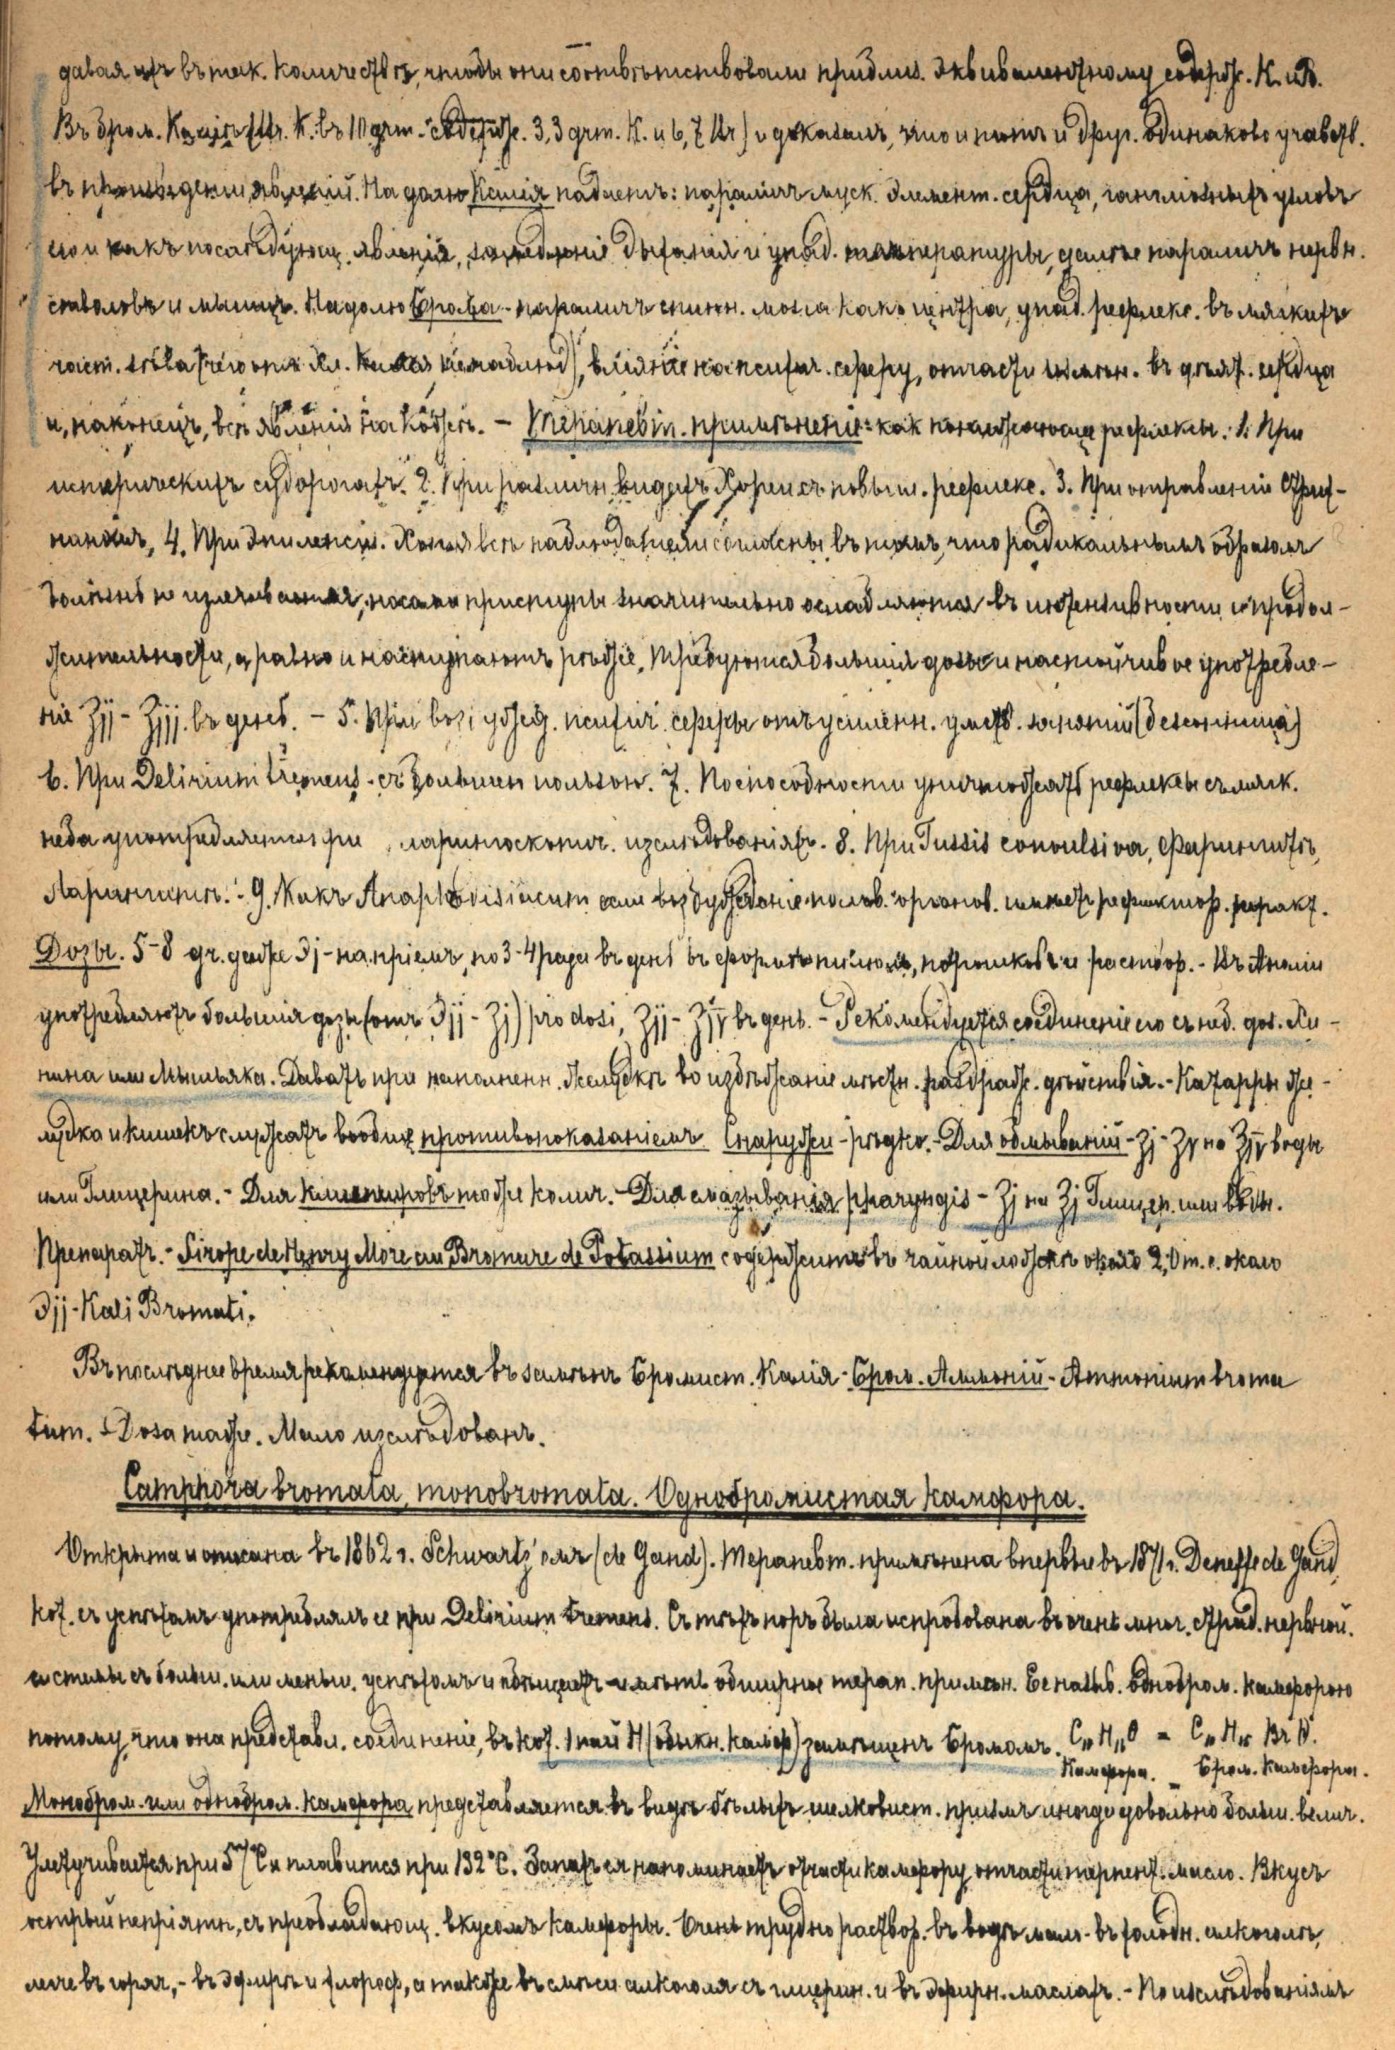 давая ихъ въ так. количествѣ, чтобы они соотвѣтствовали приблиз. эквивалентному содерж. К. и В.
Въ бром. Каліѣ (Br. К. въ 10 grm. содерж. 3,3 grm. К. и 6,7 Br) и доказалъ, что и тотъ и друг. одинаково участв.
въ произведеніи явленій. На долю Калія падаетъ: параличъ муск. элемент. сердца, гангліозныхъ узловъ
его и какъ послѣдующ. явленія, замедленіе дыханія и упад. температуры, далѣе параличъ нервн.
стволовъ и мышцъ. На долю Брома - параличъ спинн. мозга какъ центра, упад. рефлекс. въ мягкихъ
част. зѣва (чего отъ Хл. Калія не наблюд), вліяніе на психич. сферу, отчасти измѣн. въ дѣят. сердца
и, наконецъ, всѣ явленія на кожѣ. - Терапевт. примѣненіе: как понижающее рефлексы: 1. При
истерическихъ судорогахъ. 2. При различн. видахъ Хореи съ повыш. рефлекс. 3. При отравленіи Стрих-
ниномъ, 4. При эпилепсіи. Хотя всѣ наблюдатели согласны въ томъ, что радикальнымъ образомъ
болѣзнь не излечивается, но сами приступы значительно ослабляются въ интенсивности и продол-
жительности, а равно и наступаютъ рѣже. Требуются большія дозы и настойчивое употребле-
ніе ʒjj - ʒjjj. въ день. - 5. При возбужд. психич. сферы отъ усиленн. умств. занятій (безсонница)
6. При Delirium tremens - съ большею пользою. 7. По способности уничтожать рефлексы съ мягк.
неба употребляется при ларингоскопич. изслѣдованіяхъ. 8. При Tussis convulsiva, Фарингитѣ,
Ларингитѣ. - 9. Какъ Anaphrodisiacum если возбужденіе полов. органов. имѣетъ рефлектор. характ.
Дозы. 5-8 gr. даже ℈j - на пріемъ, по 3-4 раза въ день въ формѣ пилюль, порошковъ и раствор. - Въ Англіи
употребляютъ большія дозы (отъ ℈jj - ʒj) pro dosi, ʒjj - ʒjv въ день. - Рекомендуется соединеніе его съ неб. доз. Хи-
нина или Мышьяка. Давать при наполненн. желудкѣ во избѣжаніе мѣстн. раздраж. дѣйствія. - Катарры же-
лудка и кишекъ служатъ вообще противопоказаніемъ. Снаружи - рѣдко. - Для обмываній - ʒj - ʒv на ℥jv воды
или Глицерина. - Для клистировъ тоже колич. - Для смазыванія pharyngis - ʒj на ℥j Глицер. или воды.
Препаратъ. - Sirope de Henry More au Bromure de Potassium содержитъ въ чайной ложкѣ около 2,0 т. е. около
℈jj - Kali Bromati.
Въ послѣднее время рекомендуется въ замѣнъ Бромист. Калія - Бром. Аммоній - Ammonium broma
tum. - Doza таже. Мало изслѣдованъ.
Camphora bromata, monobromata. Однобромистая камфора.
Открыта и описана въ 1862 г. Schwartz'омъ (de Gand). Терапевт. примѣнена впервые въ 1871 г. Deneffe de Gand,
кот. съ успѣхомъ употреблялъ ее при Delirium tremens. Съ тѣхъ поръ была испробована въ очень мног. страд. нервной.
системы съ больш. или меньш. успѣхомъ и обѣщаетъ имѣть обширное терап. примѣн. Ее назыв. однобром. камфорою
потому, что она представл. соединеніе, въ кот. 1 пай H (обыкн. камфор) замѣщенъ Бромомъ. = Br O.
Камфора. = Бром. Камфора.
Монобром. или однобром. камфора представляется въ видѣ бѣлыхъ шелковист. призмъ иногда довольно больш. велич.
Улетучивается при 57° C и плавится при 132° C. Запахъ ея напоминаетъ отчасти камфору, отчасти терпент. масло. Вкусъ
острый непріятн., съ преобладающ. вкусомъ камфоры. Очень трудно раствор. въ водѣ, мало - въ холодн. алкоголѣ,
легче въ горяч., - въ эфирѣ и хлороф., а также въ смѣси алкоголя съ глицерин. и въ эфирн. маслахъ. - По изслѣдованіямъ